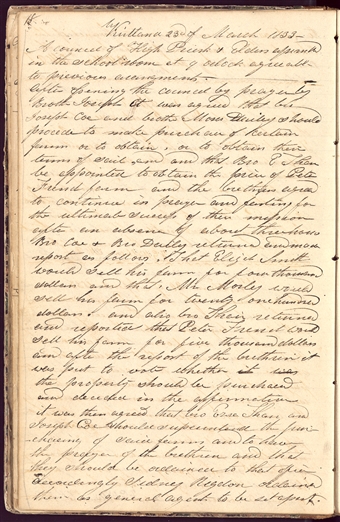 18
Kirtland 23d of March 1833—
A council of High Priests & Elders
in the school room at 9 oclock agreeabl
to previous
After opening the council by prayer by
Broth Joseph it was agreed that bro
Joseph Coe and broth Moses Dailey should
proceide to make purchase of certain
farm or to obtain, or to obtain their
terms of sail and that Bro E Thair
be appointed to obtain the price of Peter
French farm and the brethren agree
to continue in prayer and fasting for
the ultimate success of their mission
after an absence of about three hours
Bro Coe & Bro Dailey returned and made
report as follows, That Elijah Smith
would sell his farm for four thousand
dollars and that Mr Morley would
sell his farm for twenty one hundred
dollars, and also bro Thair returned
and reported that Peter French would
sell his farm for five thousand dollars
and after the report of the brethren it
was put to vote whether it was
the property should be purchased
and decided in the affirmative
it was then agreed that bro Thair and
Joseph Coe should superintend the pur-
chasing of said farms and to have
the prayer of the brethren and that
they should be ordained to that
accordingly Sidney Rigdon ordained
them as general agents to be set apart